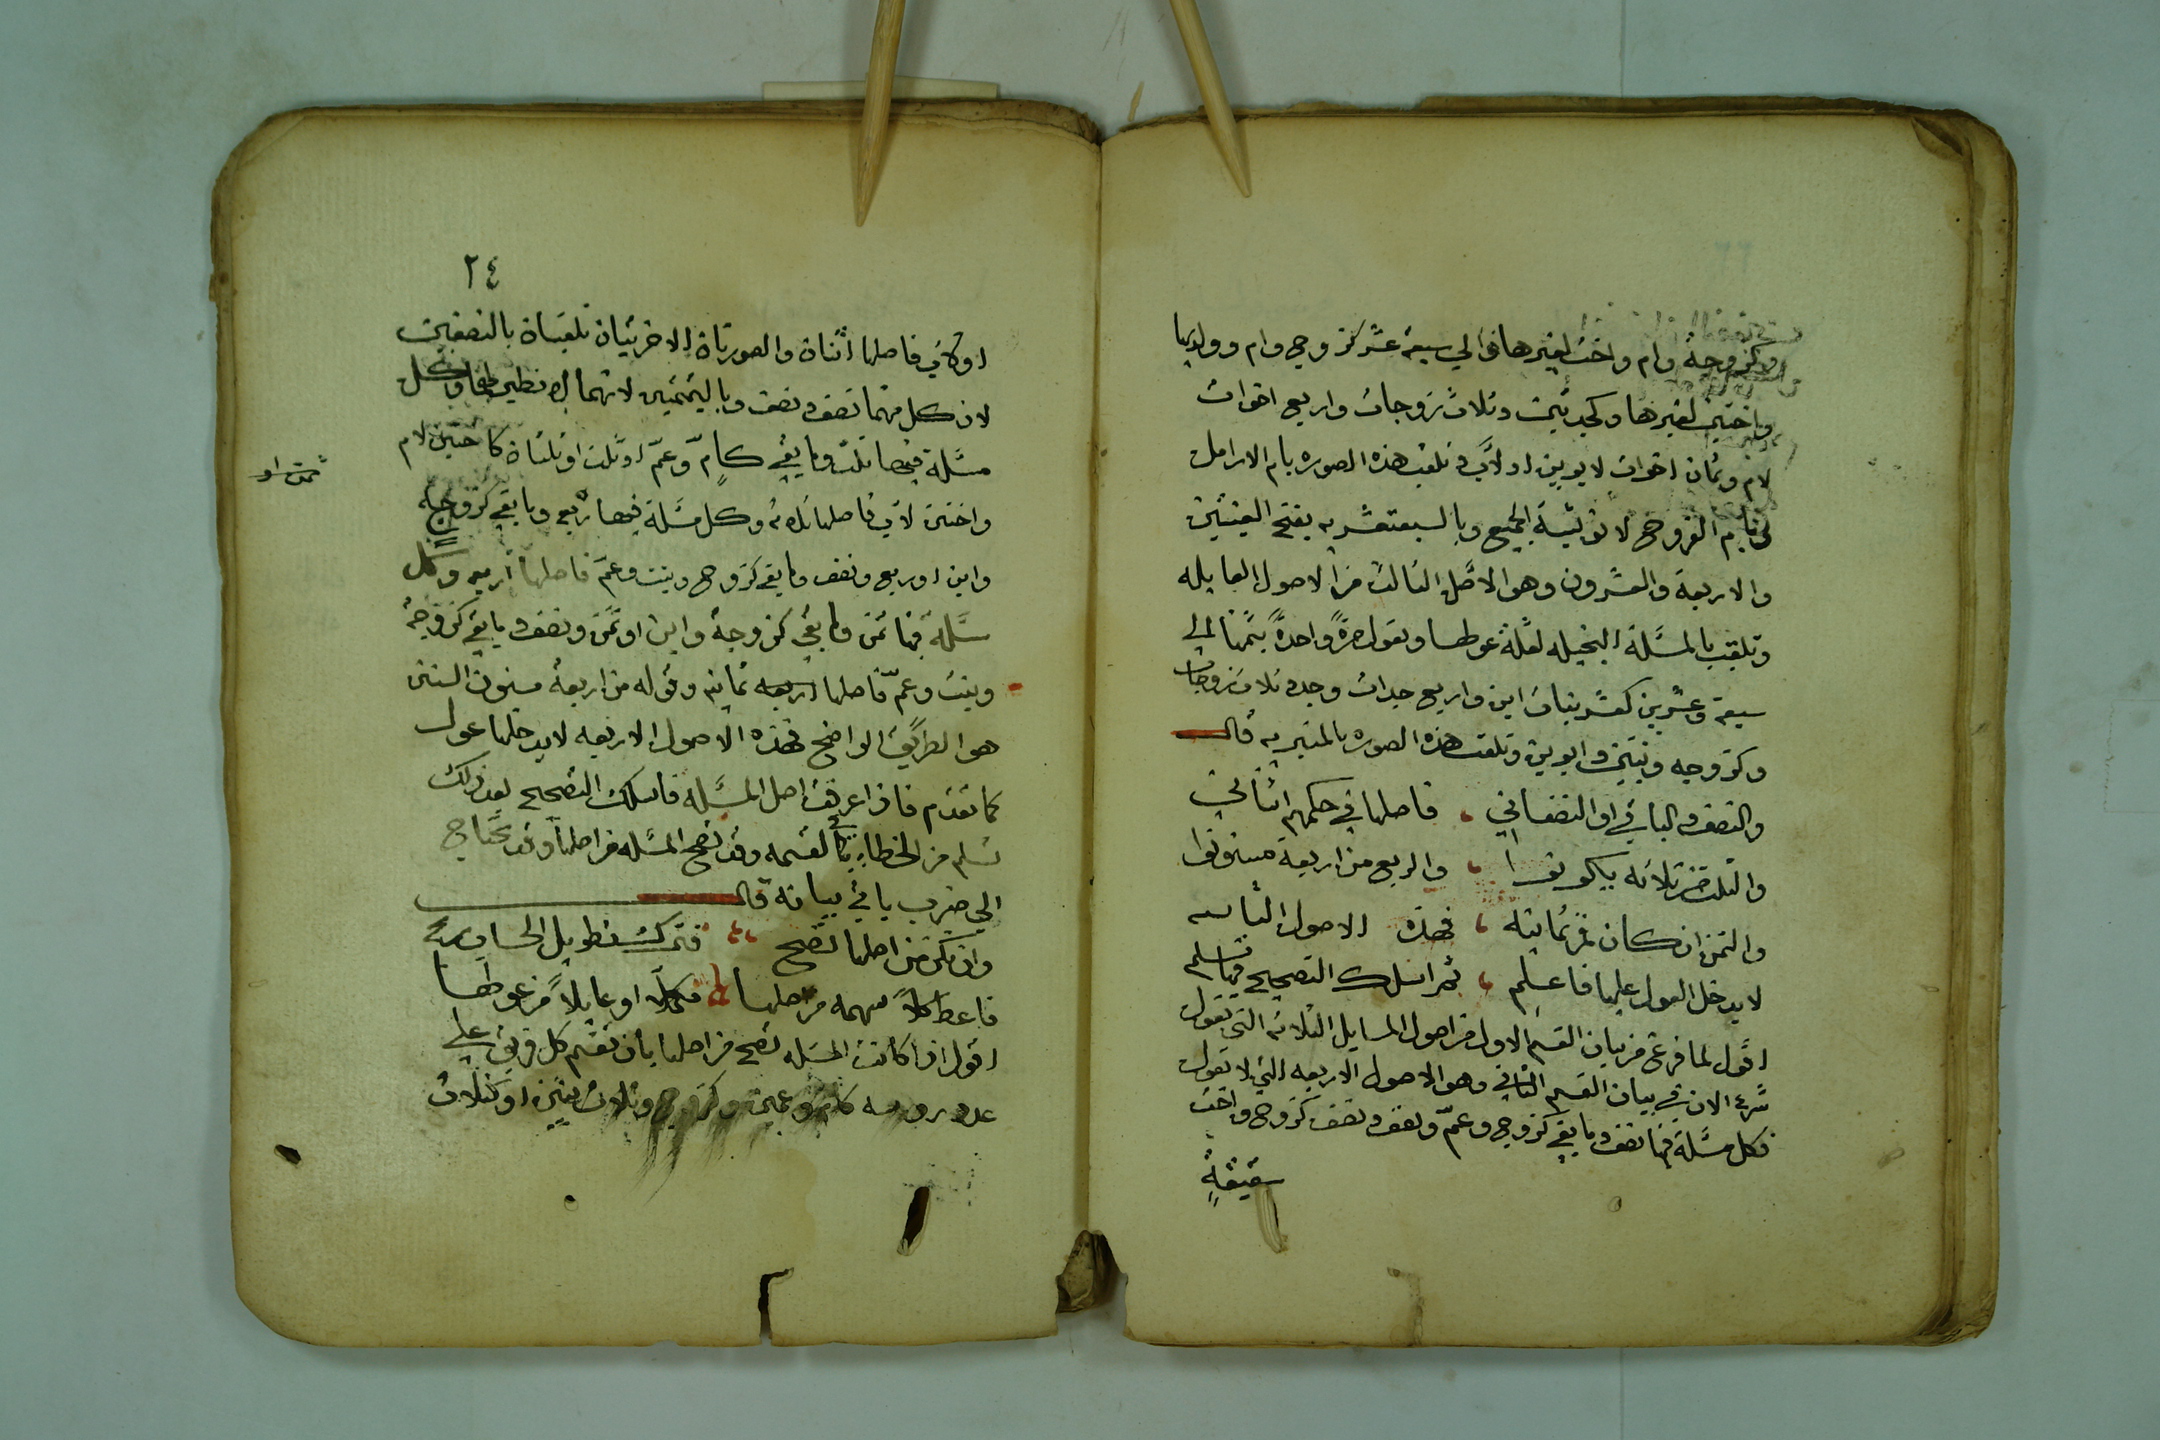 وكزوجة وام واختين لغيرها والي سبعة عشر كزوجة وام وولديها
واختين لغيرها وكجدتين وثلاث زوجات واربع اخوات
لام وثمان اخوات لابوين اولاب وتلقب هذه الصوره بام الارامل
بام الفروج لانوثية الجميع وبالسبعتعشريه بفتح العينين
والاربعة والعشرون وهو الاصل الثالث من الاصول العايله
وتلقب بالمسئلة البخيله لقلة عولها وتعول مرةً واحدةً بثمنها الى
سبعة وعشرين كعشر بنات ابن واربع جدات وجد وثلاث زوجات
وكزوجه وبنتين وابوين وتلقب هذه الصوره بالمنبريه قال
والنصف والباقي او النصفاني فاصلها في حكمهم اثناني
والثلث من ثلاثه يكونوا والربع من اربعة مسنونوا
والثمن ان كان فمن ثمانيه فهذه الاصول الثانيه
لا يدخل العول عليها فاعلم ثم اسلك التصحيح فيها تسلم
اقول لما فرغ من بيان القسم الاول من اصول المسايل الثلاثه التي تعول
شرع الان في بيان القسم الثاني وهو الاصول الاربعه التي لا تعول
فكل مسئلة فيها نصف وما بقي كزوج وعمّ ونصف ونصف كزوج واخت
شقيقةٍ
٢٤
او لاب فاصلها اثنان والصورتان الاخرتيان تلقبان بالنصفين
لان كل منهما نصف ونصف وباليتيمتين لانهما لا نظير لهما وكل
مسئلة فيها ثلث وما بقي كامٍّ وعمّ او ثلث او ثلثان كاختين لام
واختين لاب فاصلها ثلاثه وكل مسئلة فيها ربع وما بقي كزوجٍ
وابن او ربع ونصف وما بقي كزوج وبنت وعمّ فاصلها اربعه وكل
ثمن او
مسئلة فيها ثمن وما بقي كزوجة وابن او ثمن ونصف وما بقي كزوجة
وبنت وعمّ فاصلها اربعه ثمانيه وقوله من اربعة مسنون السنن
هو الطريق الواضح فهذه الاصول الاربعه لا يدخلها عول
كما تقدم فاذا عرفت اصل المسئله فاسلك التصحيح بعد ذلك
تسلم من الخطا في القسمه وقد تصح المسئله من اصلها وقد تحتاج
الي ضرب ياتي بيانه قال
وان تكن من اصلها تصح فترك تطويل الحساب ربح
فاعط كلاً سهمه من اصلها مكملاً او عايلاً من عولها
اقول اذا كانت المسئله تصح من اصلها بان تقسم كل فريق علي
عدد روسه كام وعمين وكزوج وثلاث بنين او كثلاث